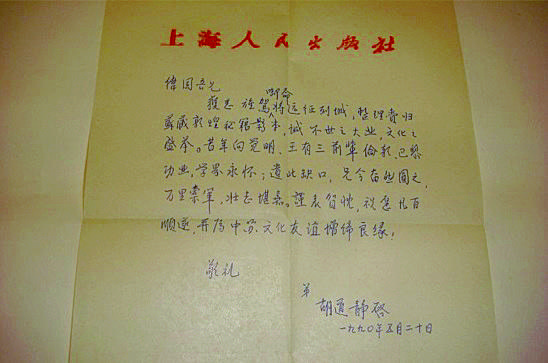 上海人民出版社
偉国吾兄
獲悉旌駕啣命将远征列城，整理归
藏敦煌秘籍影本，诚不世之大业，文化之
盛举。昔年向觉明、王有三前辈伦敦、巴黎
功业，学界永怀；遗此缺口，足令奋然图之，
万里军，壮志堪嘉。謹表贺忱，祝您凡百
顺遂，并为中苏文化友谊增佈良缘！
敬礼
弟
胡道静啓
一九九〇年五月二十日